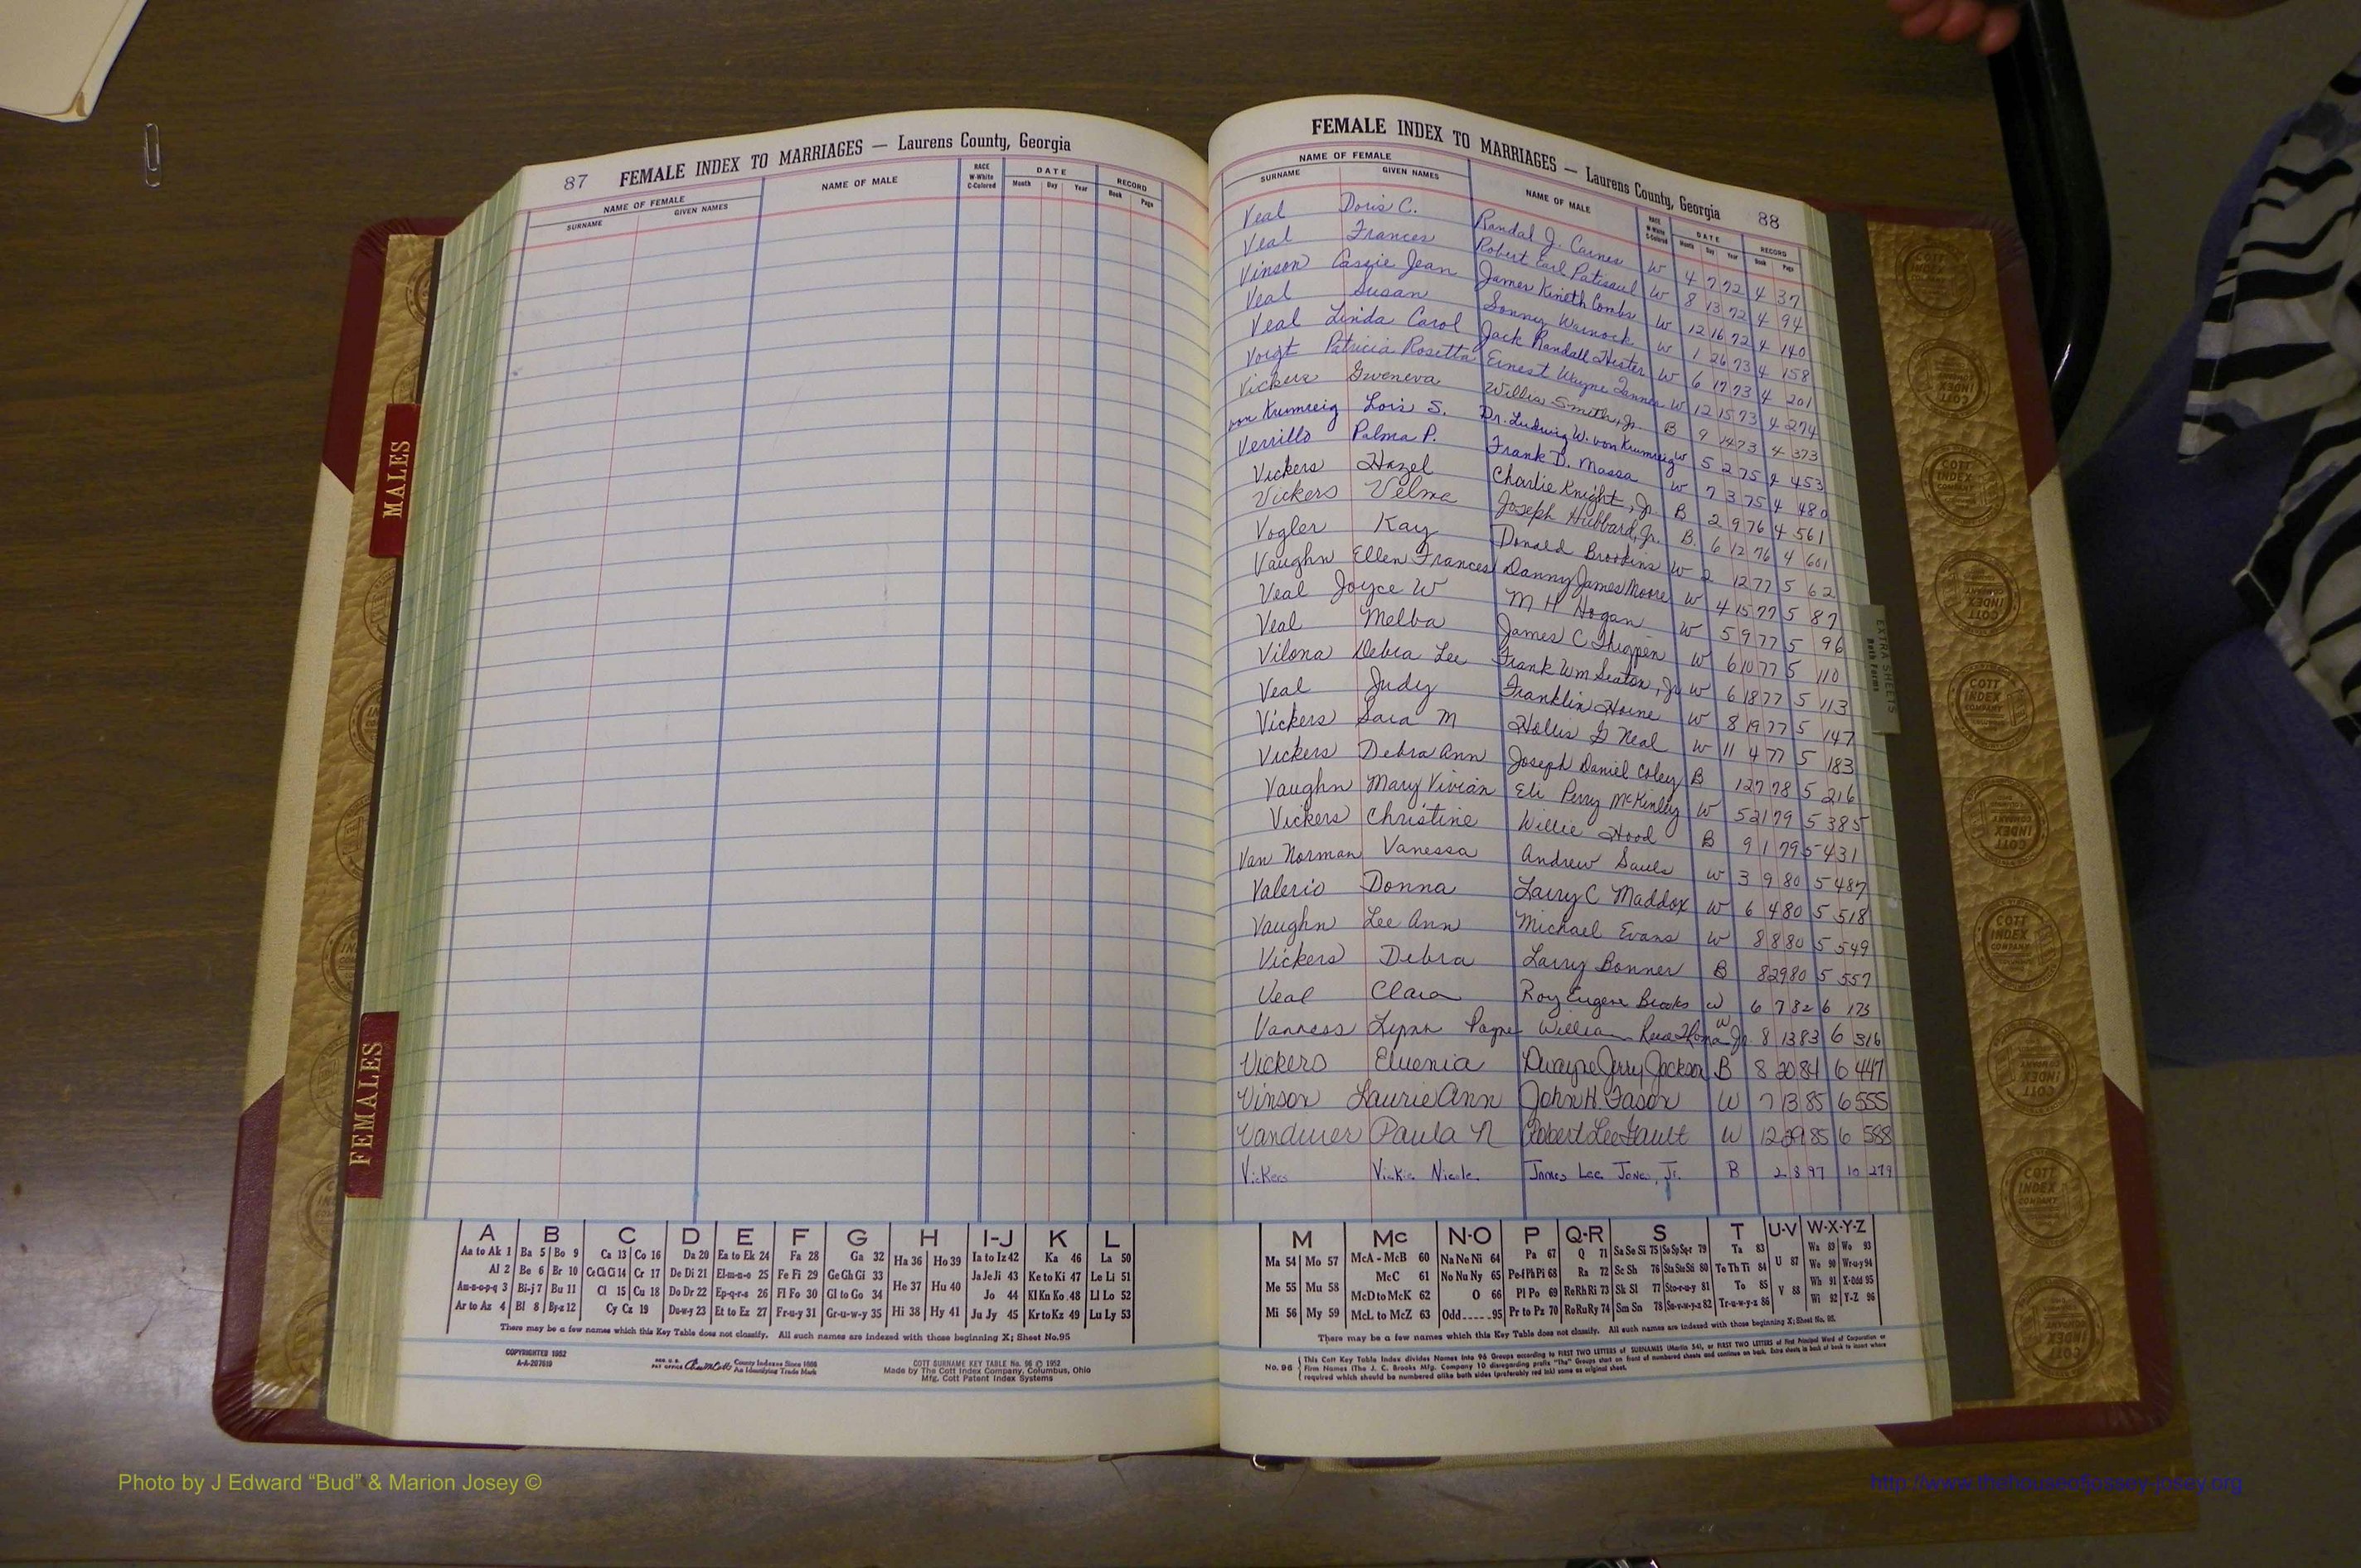 87 FEMALE INDEX TO MARRIAGES — Laurens County, Georgia
NAME OF FEMALE
SURNAME GIVEN NAMES
NAME OF MALE
RACE
W-White
C-Colored
DATE
Month Day Year
RECORD
Book Page
FEMALE INDEX TO MARRIAGES — Laurens County, Georgia 88
NAME OF FEMALE
SURNAME GIVEN NAMES
NAME OF MALE
RACE
W-White
C-Colored
DATE
Month Day Year
RECORD
Book Page
Veal Doris C. Randal J. Carnes W 4 7 72 4 37
Veal Frances Robert Earl W 8 13 72 4 94
Vinson Cassie Jean James Kineth Combs W 12 16 72 4 140
Veal Susan Sonny Warnock W 1 26 73 4 158
Veal Linda Carol Jack Randall Hester W 6 17 73 4 201
Voigt Patricia Rosetta Ernest Wayne Tanner W 12 15 73 4 274
Vickers Gweneva Willie Smith, Jr. B 9 14 73 4 373
von Krumreig Lois S. Dr. Ludwig W. von Krumreig W 5 2 75 4 453
Verrillo Palma P. Frank D. Massa W 7 3 75 4 480
Vickers Hazel Charlie Knight, Jr. B 2 9 76 4 561
Vickers Velma Joseph Hubbard, Jr. B 6 12 76 4 601
Vogler Kay Donald Brookins W 2 12 77 5 62
Vaughn Ellen Frances Danny James Moore W 4 15 77 5 87
Veal Joyce W M H Hogan W 5 9 77 5 96
Veal Melba James C Thigpen W 6 10 77 5 110
Vilona Debra Lee Frank Wm Seaton, Jr W 6 18 77 5 113
Veal Judy Franklin Horne W 8 19 77 5 147
Vickers Sara M Hollis G Neal W 11 4 77 5 183
Vickers Debra Ann Joseph Daniel Coley B 1 27 78 5 216
Vaughn Mary Vivian Eli Perry McKinley W 5 21 79 5 385
Vickers Christine Willie Hood B 9 1 79 5 431
Van Norman Vanessa Andrew Sauls W 3 9 80 5 487
Valerio Donna Larry C Maddox W 6 4 80 5 518
Vaughn Lee Ann Michael Evans W 8 8 80 5 549
Vickers Debra Larry Bonner B 8 29 80 5 557
Veal Clara Roy Eugene Brooks W 6 7 82 6 173
Vanness Lynn Payne William W Jr. 8 13 83 6 316
Vickers Eluenia Dwayne Jerry Jackson B 8 20 84 6 447
Vinson Laurie Ann John H. Fason W 7 13 85 6 555
Vandiver Paula N Robert Lee Gault W 12 29 85 6 588
Vickers Vickie Nicole James Lee Jones, Jr. B 2 8 97 10 279
MALES
FEMALES
EXTRA SHEETS
Both Forms
COTT
INDEX
COMPANY
A B C D E F G H I-J K L
Aa to Ak 1 Ba 5 Bo 9 Ca 13 Co 16 Da 20 Ea to Ek 24 Fa 28 Ga 32 Ha 36 Ho 39 Ia to Iz 42 Ka 46 La 50
Al 2 Be 6 Br 10 Ce Ch Ci 14 Cr 17 De Di 21 El-m-n-o 25 Fe Fi 29 Ge Gh Gi 33 He 37 Hu 40 Ja Je Ji 43 Ke to Ki 47 Le Li 51
Am-n-o-p-q 3 Bi-j 7 Bu 11 Cl 15 Cu 18 Do Dr 22 Ep-q-r-s 26 Fl Fo 30 Gl to Go 34 Jo 44 Kl Kn Ko 48 Ll Lo 52
Ar to Az 4 Bl 8 By-z 12 Cy Cz 19 Du-w-y 23 Et to Ez 27 Fr-u-y 31 Gr-u-w-y 35 Hi 38 Hy 41 Ju Jy 45 Kr to Kz 49 Lu Ly 53
There may be a few names which this Key Table does not classify. All such names are indexed with those beginning X; Sheet No. 95
COPYRIGHTED 1952
County Indexes Since 1888
An Identifying Trade Mark
COTT SURNAME KEY TABLE No. 96 © 1952
Made by The Cott Index Company, Columbus, Ohio
Mfg. Cott Patent Index Systems
M Mc N-O P Q-R S T U-V W-X-Y-Z
Ma 54 Mo 57 McA - McB 60 Na Ne Ni 64 Pa 67 Q 71 Sa Se Si 75 So Sp Sq-r 79 Ta 83 U 87 Wa 89 Wo 93
Me 55 Mu 58 McC 61 No Nu Ny 65 Pe-f Ph Pi 68 Ra 72 Sc Sh 76 Sta Ste Sti 80 Te Th Ti 84 We 90 Wr-u-y 94
McD to McK 62 O 66 Pl Po 69 Re Rh Ri 73 Sk Sl 77 Sto-r-u-y 81 To 85 V 88 Wh 91 X-Odd 95
Mi 56 My 59 McL to McZ 63 Odd.....95 Pr to Pz 70 Ro Ru Ry 74 Sm Sn 78 Su-v-w-y-z 82 Tr-u-w-y-z 86 Wi 92 Y-Z 96
There may be a few names which this Key Table does not classify. All such names are indexed with those beginning X; Sheet No. 95.
No. 96 This Cott Key Table Index divides Names into 96 Groups according to FIRST TWO LETTERS of SURNAMES (Martin 54), or FIRST TWO LETTERS of First Principal Word of Corporation or
Firm Names (The J. C. Brooks Mfg. Company 10 disregarding prefix "The" Groups start on front of numbered sheets and continue on back. Extra sheets in back of book to insert where
required which should be numbered alike both sides (preferably red ink) same as original sheet.
Photo by J Edward “Bud” & Marion Josey ©
http://www.thehouseofjossey-josey.org